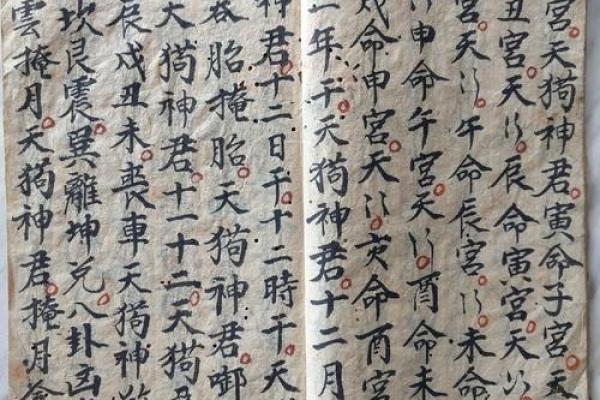 宮天㺃神君寅命子宮天
丑宮天〻辰命寅宮天〻
宮天〻午命辰宮〻未命
〻申命午宮天〻酉命未
戌命申宮天〻亥命酉宮
年干天㺃神君十二月
神君十二日干十二時干天
吞胎掩胎天㺃神君啣
大㺃神君十一十二天㺃
辰戌丑未喪車天㺃神
坎艮震巽離坤兌八卦凶
雲掩月天㺃神君掩月